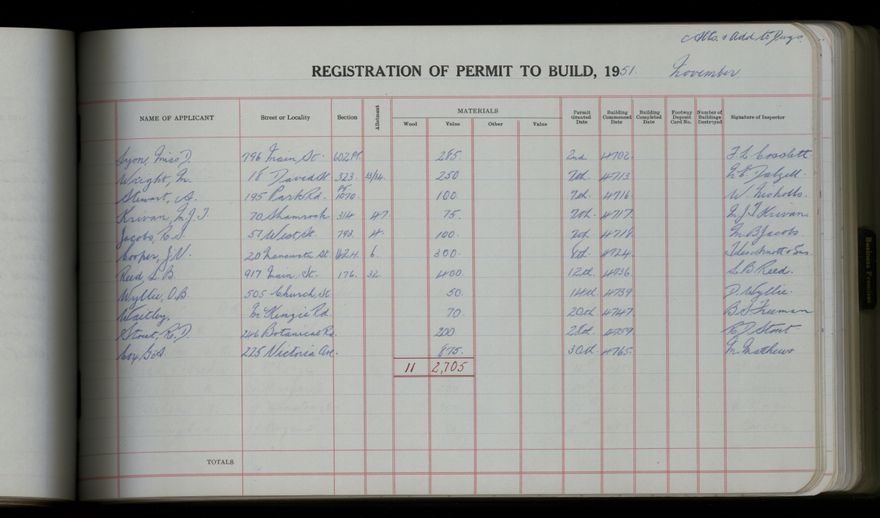 Alts. & Add to Bngs.
REGISTRATION OF PERMIT TO BUILD, 1951. November
NAME OF APPLICANT Street or Locality Section Allotment MATERIALS Permit Granted Date Building Commenced Date Building Completed Date Footway Deposit Card No. Number of Buildings Destroyed Signature of Inspector
Wood Value Other Value
Lyons, Miss D. 796 Main St. 602 Pt. 285. 2nd 4702. F. L. Cosslett
Wright, M. 18 David St. 323. 13/14. 250 7th 4713
Stewart, A. 195 Park Rd. Pt. 1070 100. 7th 4716 W. Nicholls.
Krivan, L. J. T. 70 Shamrock 314 47. 75. 7th 4717. L. J. T. Krivan
Jacobs, 57 West St. 793. 4. 100. 7th 4718. M. B. Jacobs.
Cooper, J. V. 20 St. 1624. 6. 300. 8th 4724.
Reed, L. B. 917 Main St. 176. 32 400. 12th 4736. L. B. Reed.
Wyllie, D. B 505 Church St. 50. 14th 4739 D. Wyllie.
Waitley. McKenzie Rd 70. 20th 4747 B. S. Freeman
Stout, R. D. 246 Botanical Rd. 200 28th 4759 R. D. Stout
Cox Bros. 225 Victoria Ave. 875. 30th 4765. M. Mathews
11 2,705
TOTALS